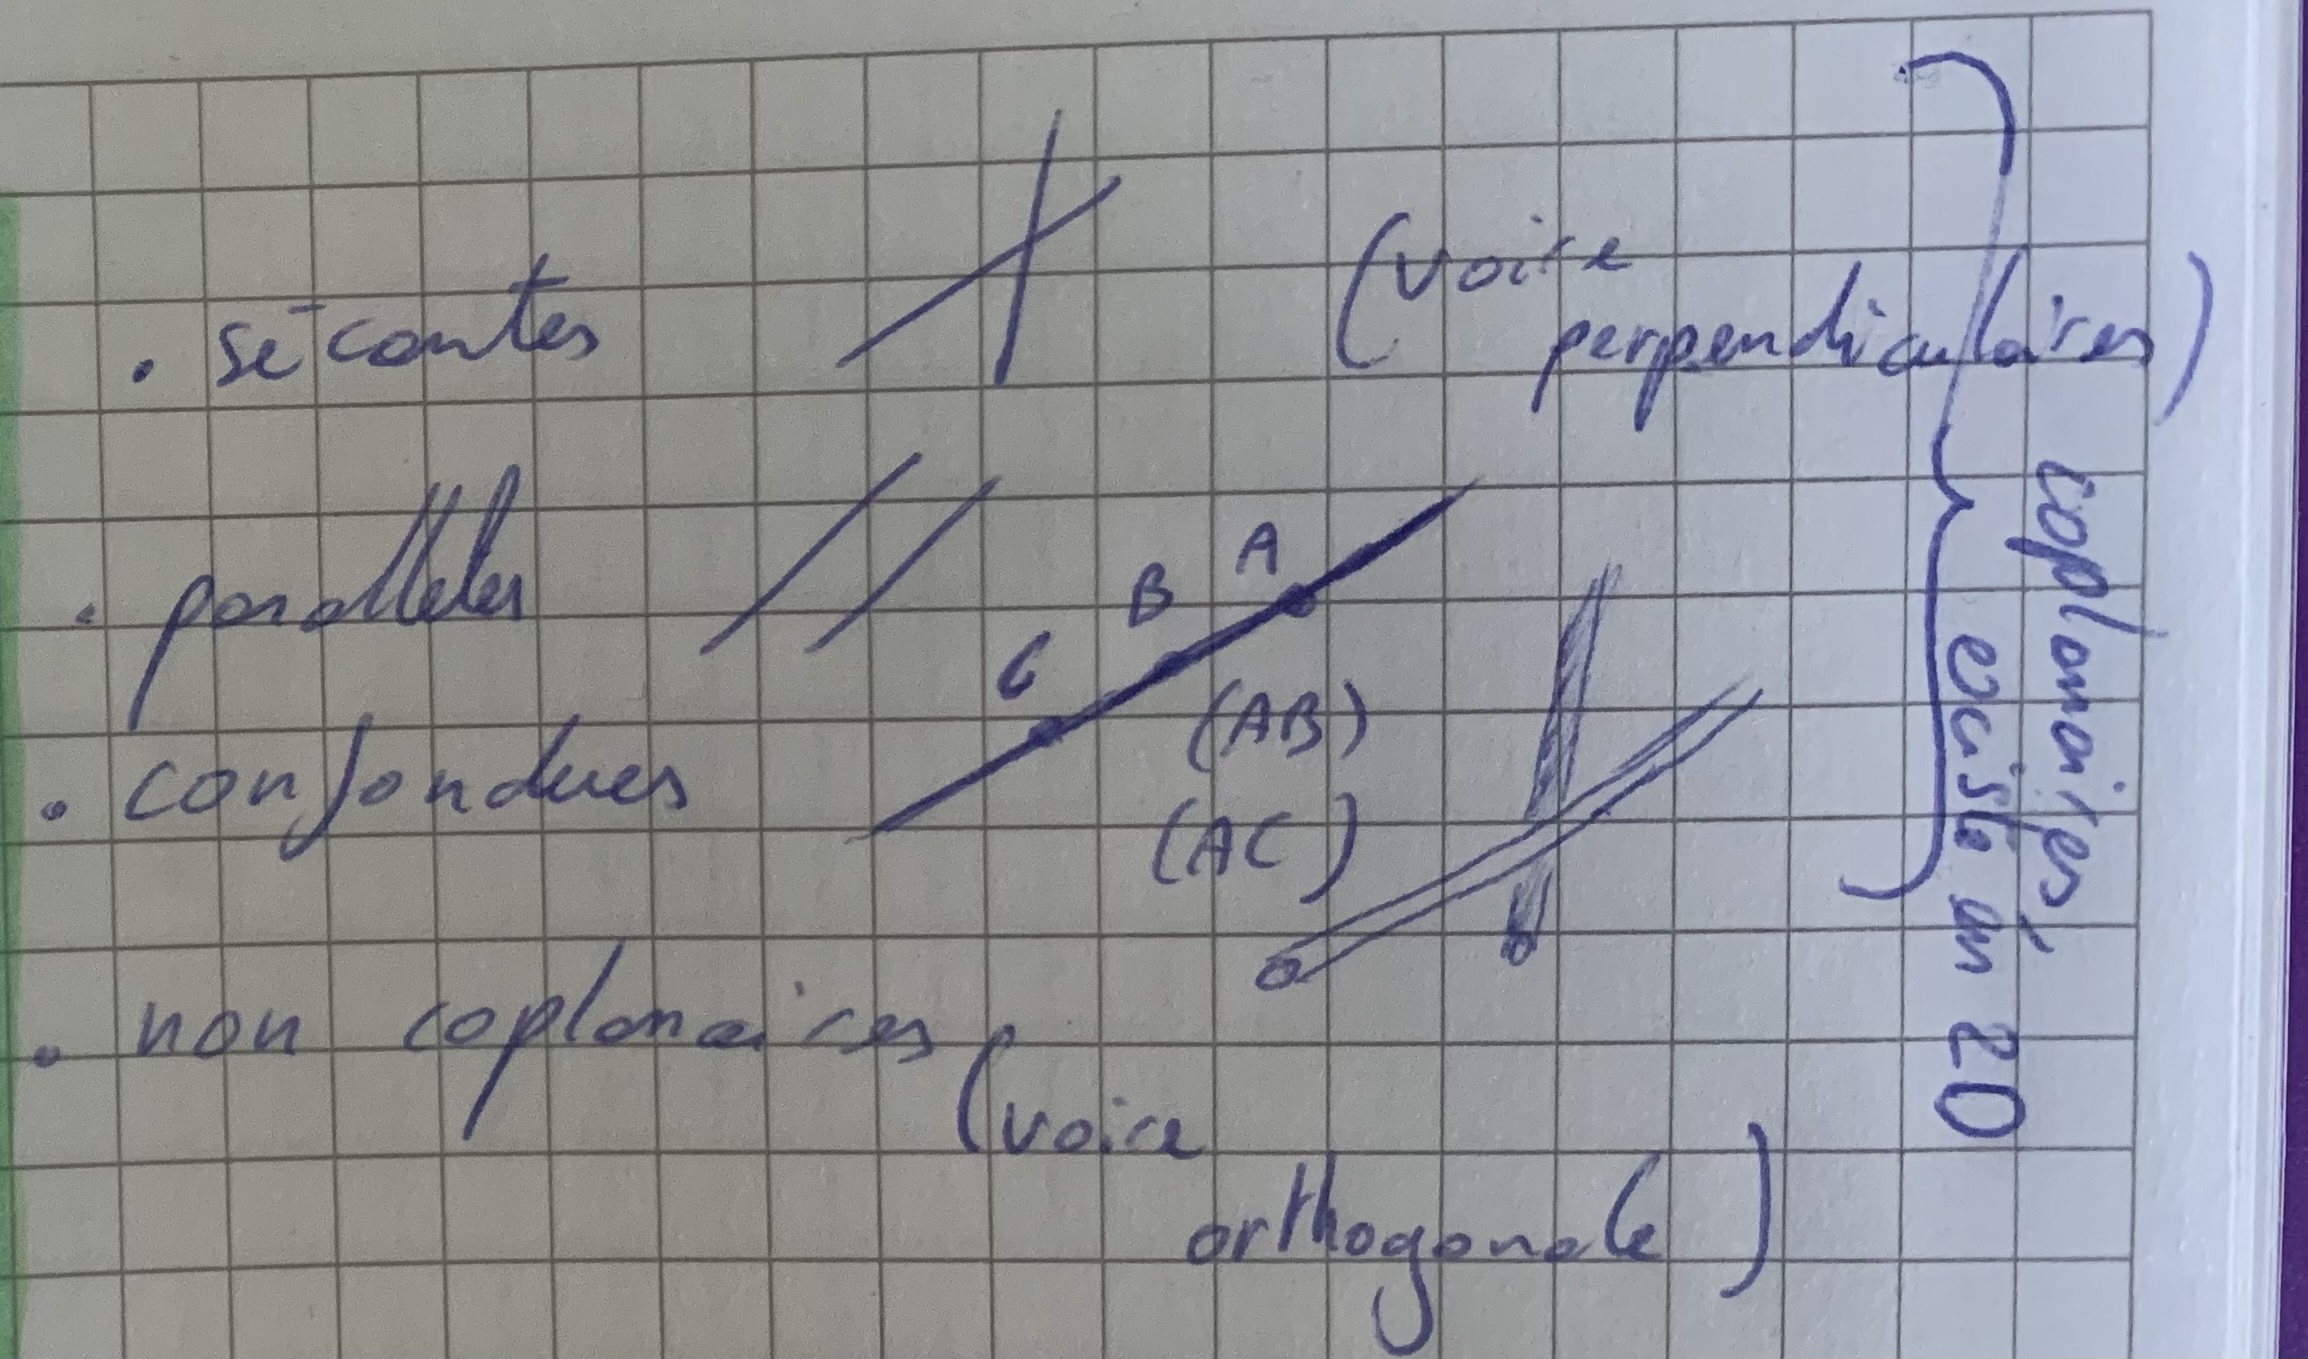 . sécantes
(voire
perpendiculaires)
. parallèles
A
B
C
(AB)
. confondues
(AC)
. non coplanaires
(voire
orthogonale)
coplanaires
existe en 2D